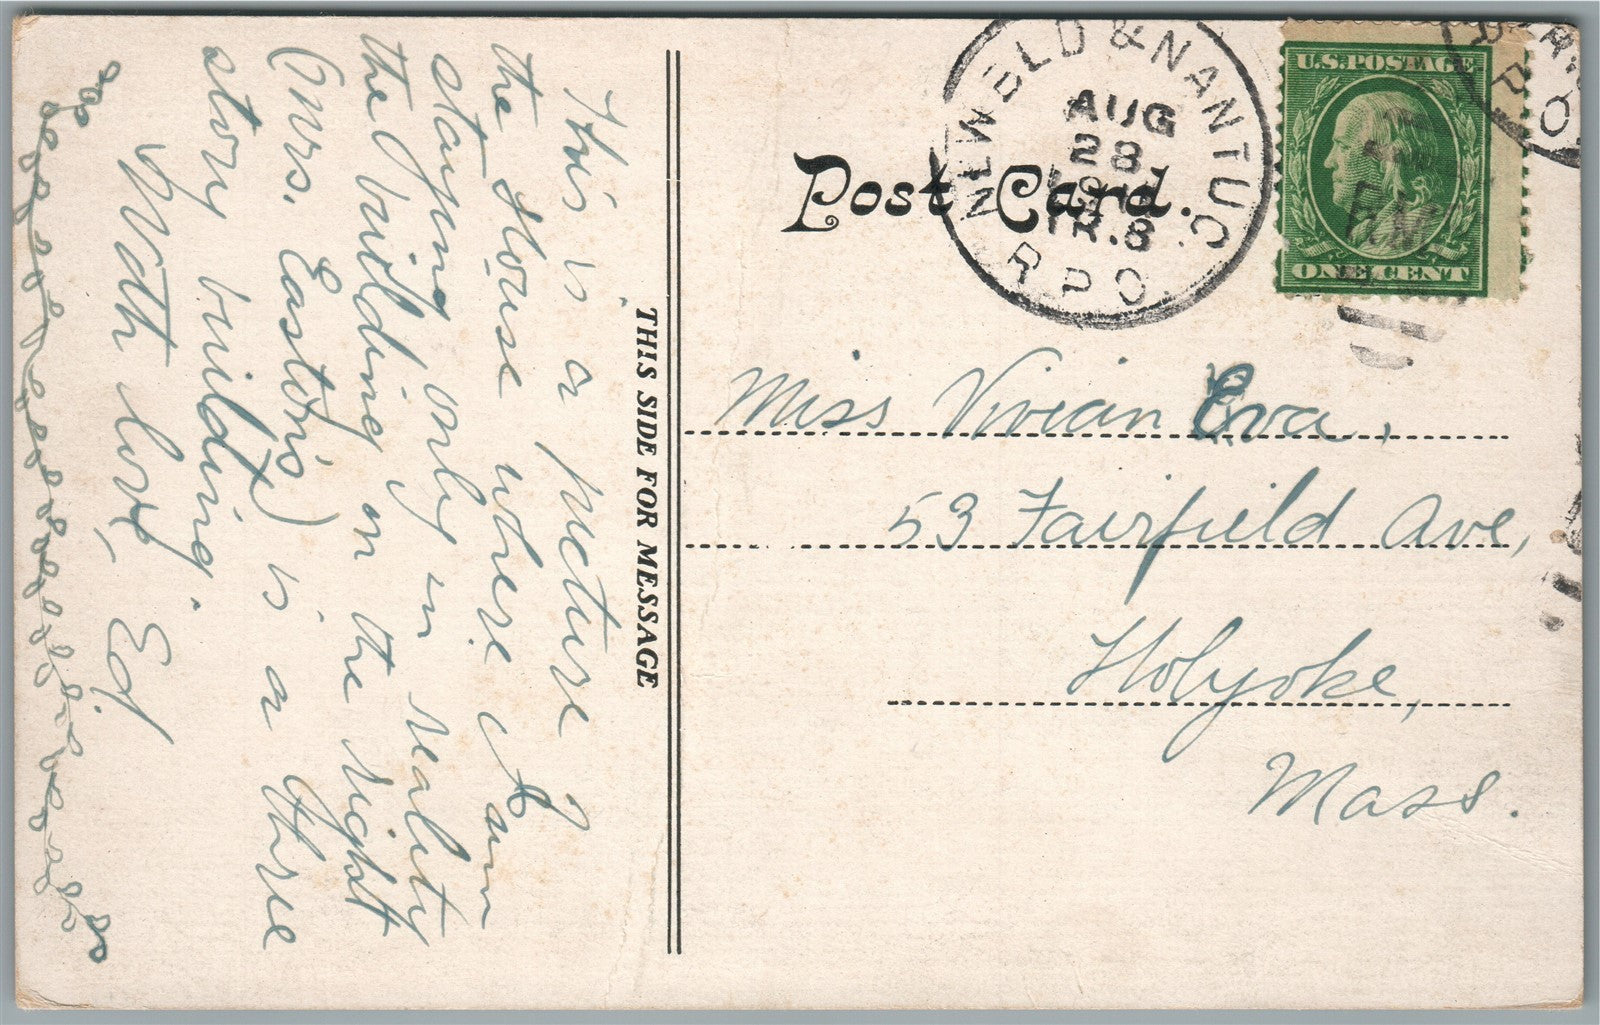 This is a picture of
the House where I am
staying only in reality
the building on the right
(Mrs. Easton's) is a three
story building.
With love, Ed.
THIS SIDE FOR MESSAGE
Post Card.
NEW BED & NANTUC
AUG
28
TR.8
R.P.O.
U.S. POSTAGE
ONE CENT
Miss Vivian Eva,
53 Fairfield Ave,
Holyoke,
Mass.